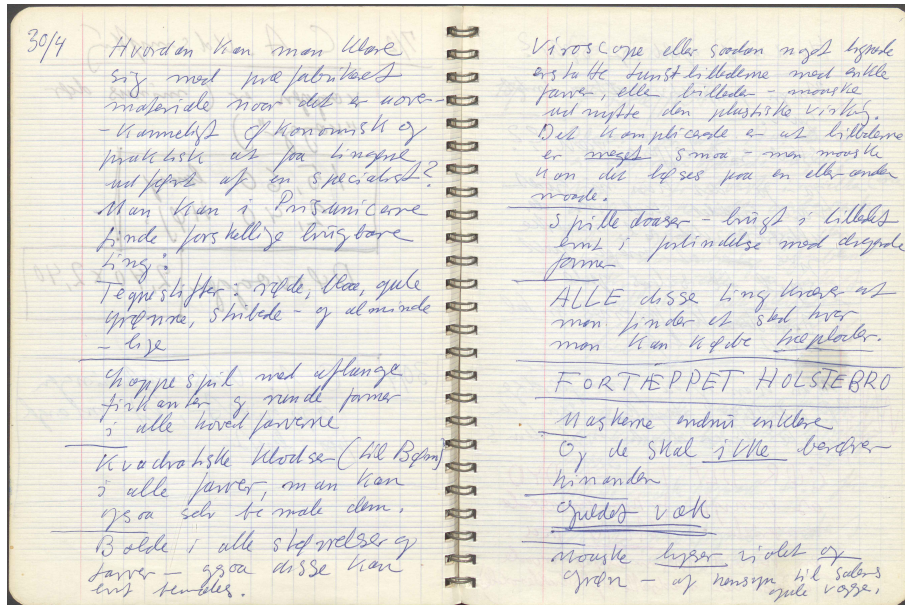 30/4
Hvordan kan man klare
sig med præfabrikeret
materiale naar det er uover-
- kommeligt økonomisk og
praktisk at faa tingene
udført af en specialist?
Man kan i Prisunicerne
finde forskellige brugbare
ting:
Tegnestifter: røde, blaa, gule
grønne, stribede - og alminde
- lige
Hoppespil med aflange
firkanter og runde former
i alle hovedfarverne
Kvadratiske klodser (til Børn)
i alle farver, man kan
ogsaa selv bemale dem.
Bolde i alle størrelser og
farver - ogsaa disse kan
evt bemales.
Viroscope eller saadan noget lignende
erstatte turistbillederne med enkle
farver, eller billeder - maaske
udnytte den plastiske virkng.
Det komplicerede er at billederne
er meget smaa - men maaske
kan det løses paa en eller anden
maade.
Spilledaaser - brugt i billedet
evt i forbindelse med drejende
former
ALLE disse ting kræver at
man finder et sted hvor
man kan købe træplader.
FORTÆPPET HOLSTEBRO
Maskerne endnu enklere
Og de skal ikke berører
hinanden
Guldet væk
Maaske lyser violet og
Grøn - af hensyn til salens
gule vægge.